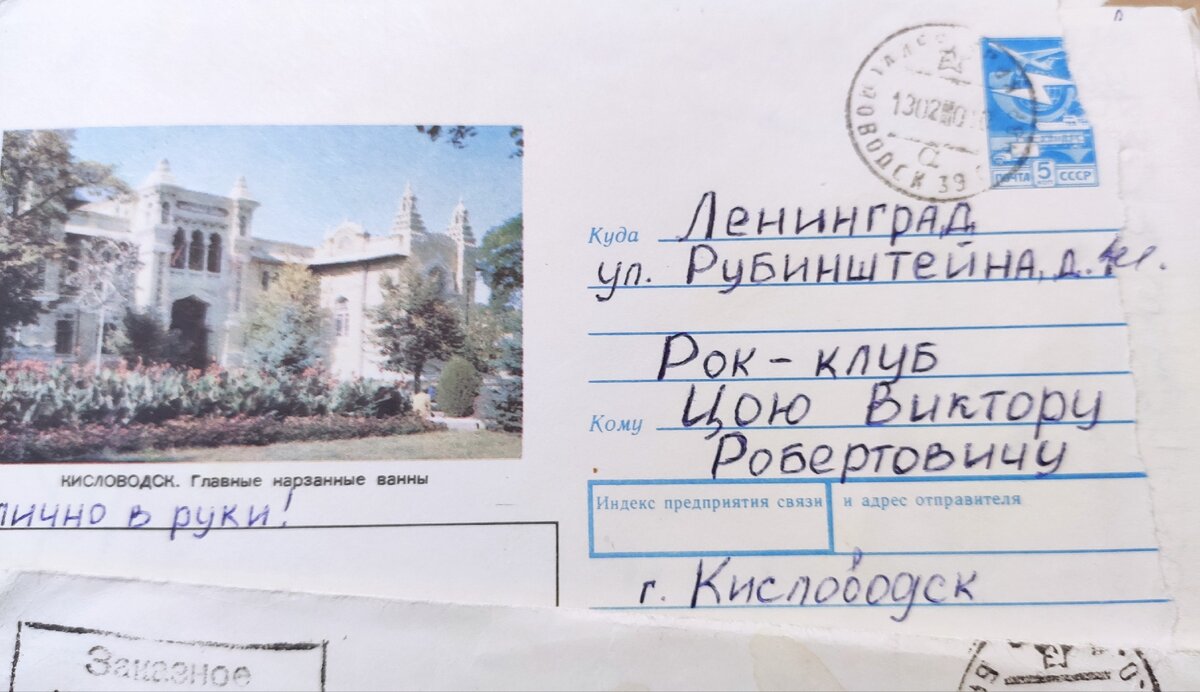 13 02
ВОДСК 39
ПОЧТА 5 СССР
Куда Ленинград
ул. Рубинштейна, д.
Рок-клуб
Кому Цою Виктору
Робертовичу
КИСЛОВОДСК. Главные нарзанные ванны
лично в руки!
Индекс предприятия связи и адрес отправителя
г. Кисловодск
Заказное